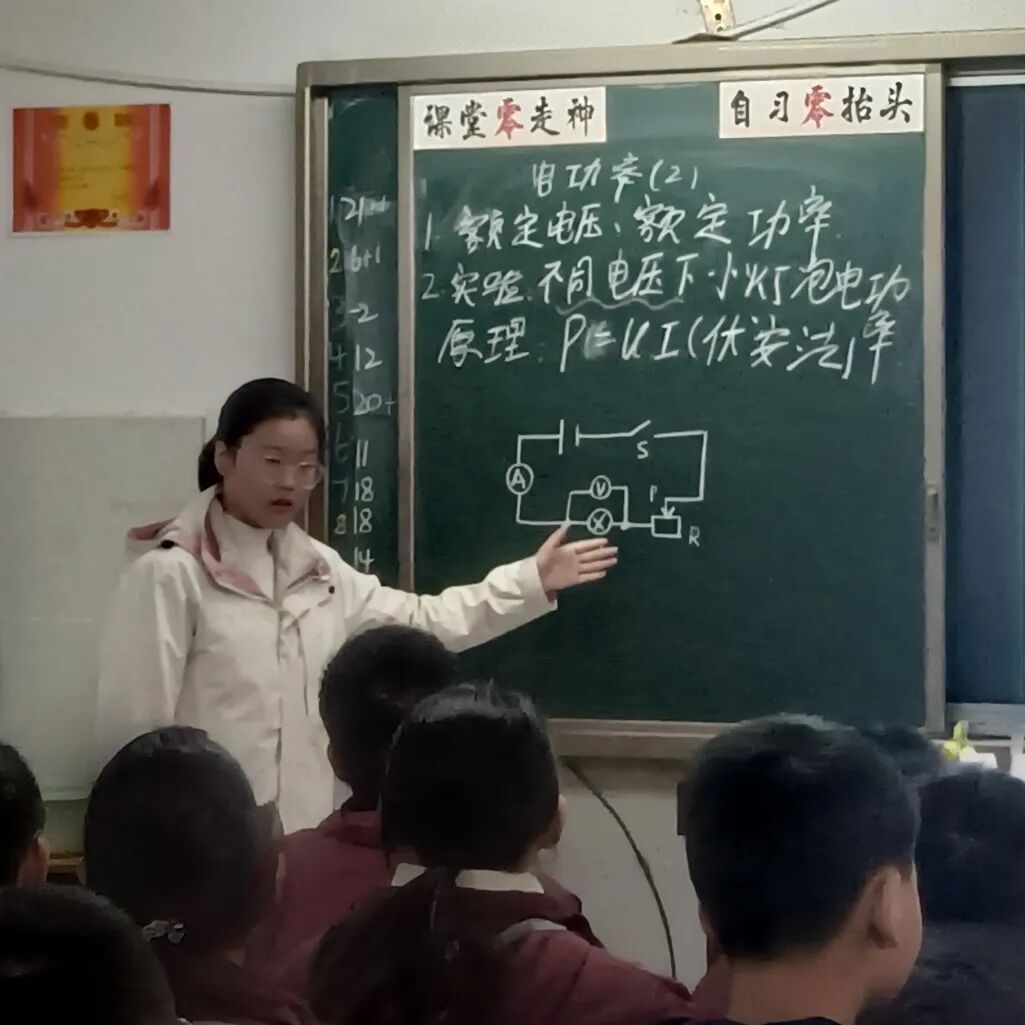 课堂零走神
自习零抬头
电功率(2)
1. 额定电压、额定功率
2. 实验 不同电压下小灯泡电功率
原理 P=UI(伏安法)
1 21
2 16+1
3 -2
4 12
5 20+
6 11
7 18
8 18
14
A
S
V
P
R